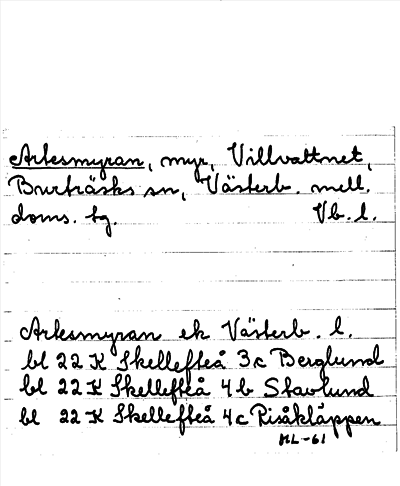 Artesmyran, myr, Villvattnet,
Burträsks sn, Västerb. mell.
doms. tg. Vb. l.
Artesmyran ek Västerb. l.
bl 22 K Skellefteå 3c Berglund
bl 22 K Skellefteå 4b Stavlund
bl 22 K Skellefteå 4c Risåkläppen
HL-61